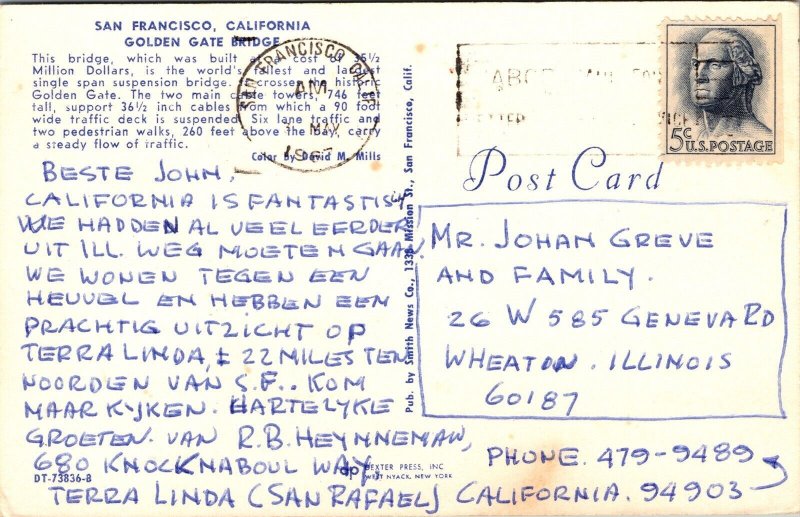 SAN FRANCISCO, CALIFORNIA
GOLDEN GATE BRIDGE
This bridge, which was built at a cost of 35½
Million Dollars, is the world's tallest and largest
single span suspension bridge. It crosses the historic
Golden Gate. The two main cable towers, 746 feet
tall, support 36½ inch cables from which a 90 foot
wide traffic deck is suspended. Six lane traffic and
two pedestrian walks, 260 feet above the Bay, carry
a steady flow of traffic.
Color by David M. Mills
SAN FRANCISCO, CALIF.
AM
MAY
1967
5¢ U.S. POSTAGE
Post Card
BESTE JOHN,
CALIFORNIA IS FANTASTISCH
WE HADDEN AL VEEL EERDER
UIT ILL. WEG MOETEN GAAN.
WE WONEN TEGEN EEN
HEUVEL EN HEBBEN EEN
PRACHTIG UITZICHT OP
TERRA LINDA, ± 22 MILES TEN
NOORDEN VAN S.F.. KOM
MAAR KYKEN. HARTELYKE
GROETEN. VAN R.B. HEYNNEMAN,
680 KNOCKNABOUL WAY
TERRA LINDA (SAN RAFAEL) CALIFORNIA. 94903
PHONE. 479-9489
Pub. by Smith News Co., 1338 Mission St., San Francisco, Calif.
MR. JOHAN GREVE
AND FAMILY.
26 W 585 GENEVA RD
WHEATON. ILLINOIS
60187
DT-73836-B
dp DEXTER PRESS, INC
WEST NYACK, NEW YORK